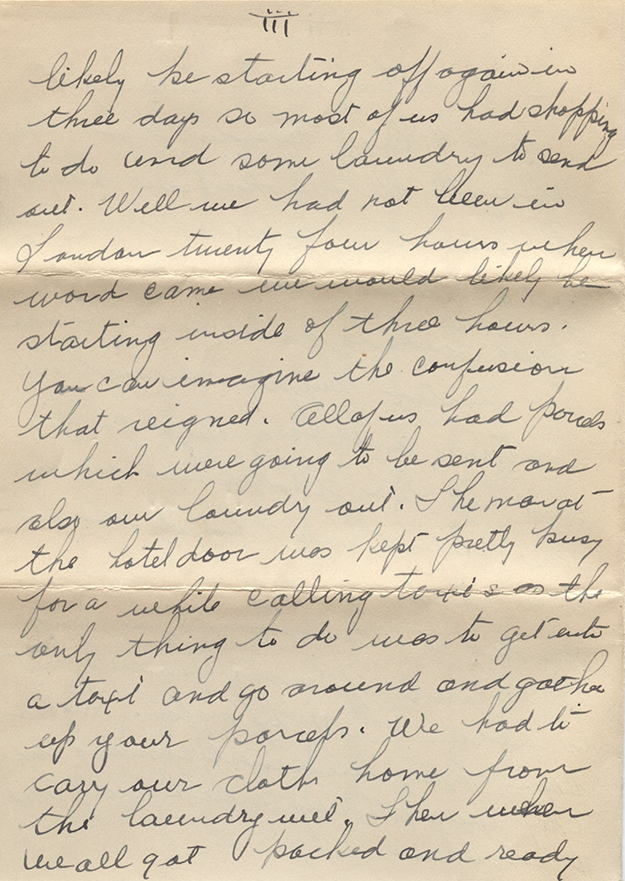 III
likely be starting off again in
three days so most of us had shopping
to do and some laundry to send
out. Well we had not been in
London twenty four hours when
word came we would likely be
starting inside of three hours.
You can imagine the confusion
that reigned. All of us had parcels
which were going to be sent and
also our laundry out. The man at
the hotel door was kept pretty busy
for a while calling taxi's as the
only thing to do was to get into
a taxi and go around and gather
up your parcels. We had to
carry our cloths home from
the laundry wet. Then when
we all got packed and ready